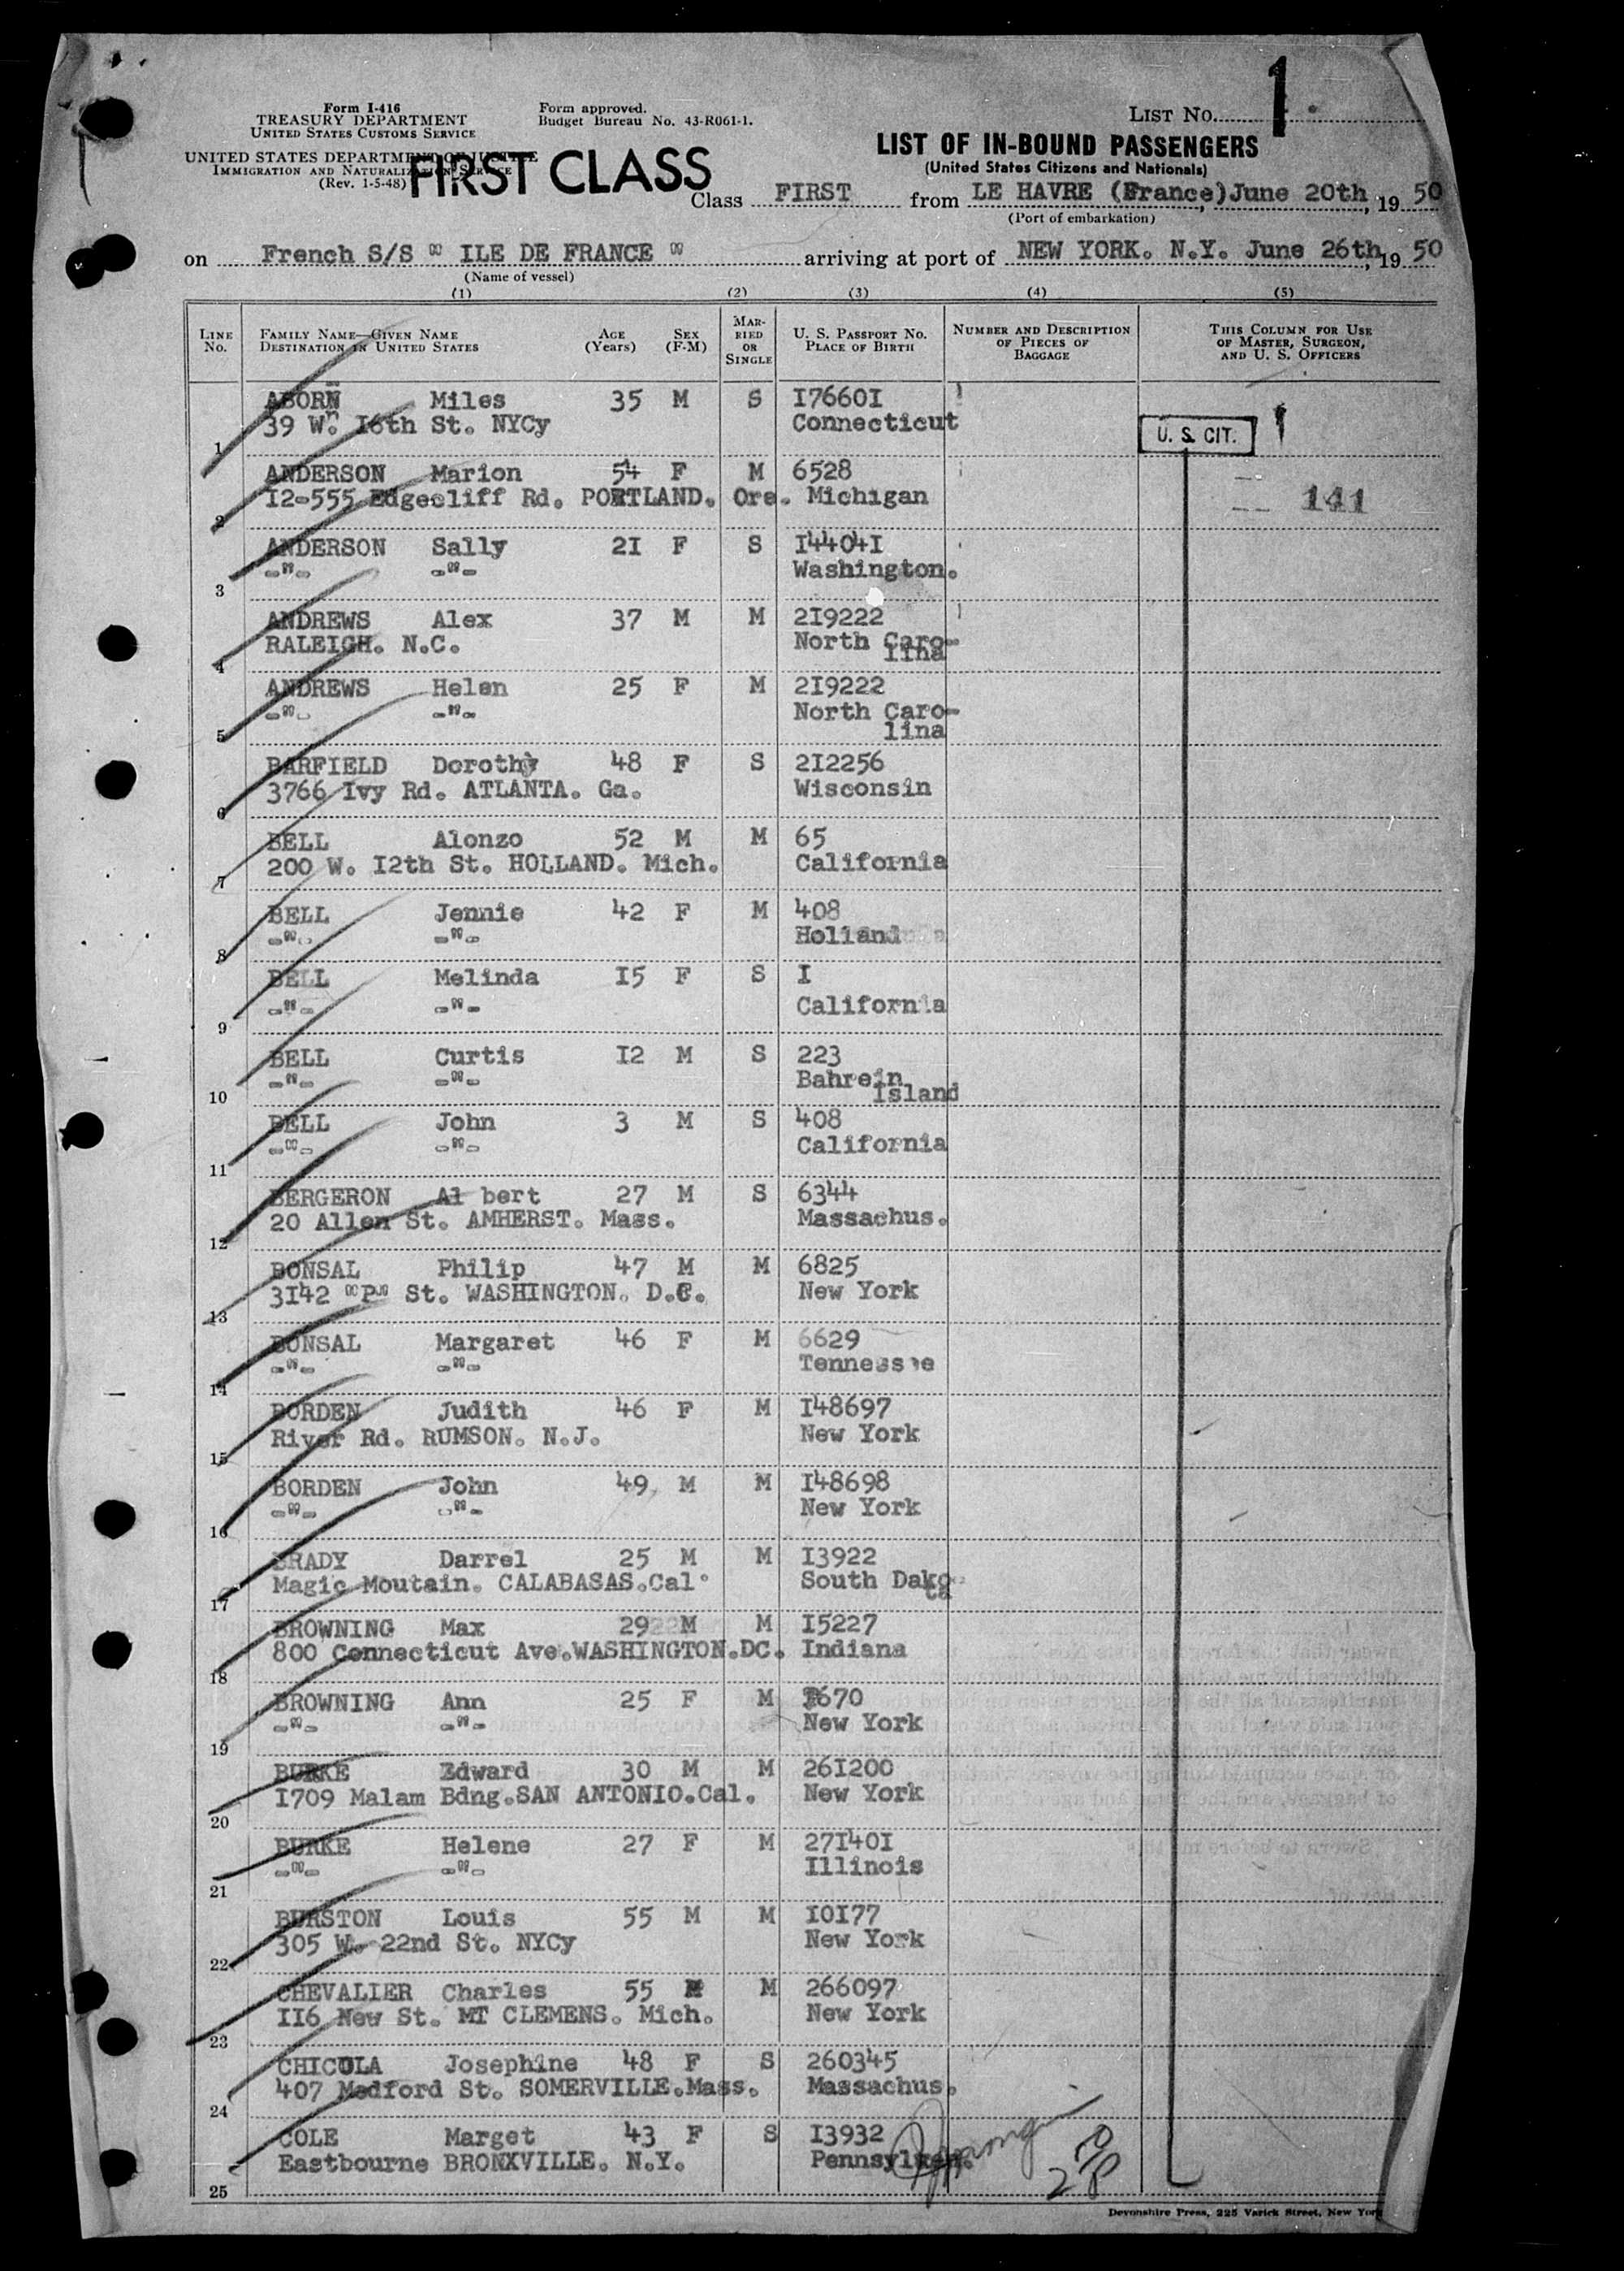 Form I-416
TREASURY DEPARTMENT
UNITED STATES CUSTOMS SERVICE
UNITED STATES DEPARTMENT OF JUSTICE
IMMIGRATION AND NATURALIZATION SERVICE
(Rev. 1-5-48)
Form approved.
Budget Bureau No. 43-R061-1.
FIRST CLASS
LIST No. 1
LIST OF IN-BOUND PASSENGERS
(United States Citizens and Nationals)
Class FIRST from LE HAVRE (France) June 20th, 19 50
(Port of embarkation)
on French S/S " ILE DE FRANCE " arriving at port of NEW YORK. N.Y. June 26th, 19 50
(Name of vessel)
(1) (2) (3) (4) (5)
LINE No. FAMILY NAME—GIVEN NAME DESTINATION IN UNITED STATES AGE (Years) SEX (F-M) MARRIED OR SINGLE U. S. PASSPORT No. PLACE OF BIRTH NUMBER AND DESCRIPTION OF PIECES OF BAGGAGE THIS COLUMN FOR USE OF MASTER, SURGEON, AND U. S. OFFICERS
ABORN Miles 35 M S I7660I
39 W. I6th St. NYCy Connecticut
1
U. S. CIT.
ANDERSON Marion 54 F M 6528
I2-555 Edgecliff Rd. PORTLAND. Ore. Michigan
2
141
ANDERSON Sally 2I F S I4404I
-"- -"- Washington.
3
ANDREWS Alex 37 M M 2I9222
RALEIGH. N.C. North Caro-
lina
4
ANDREWS Helen 25 F M 2I9222
-"- -"- North Caro-
lina
5
BARFIELD Dorothy 48 F S 2I2256
3766 Ivy Rd. ATLANTA. Ga. Wisconsin
6
BELL Alonzo 52 M M 65
200 W. I2th St. HOLLAND. Mich. California
7
BELL Jennie 42 F M 408
-"- -"- Holland
8
BELL Melinda I5 F S I
-"- -"- California
9
BELL Curtis I2 M S 223
-"- -"- Bahrein
Island
10
BELL John 3 M S 408
-"- -"- California
11
BERGERON Al bert 27 M S 6344
20 Allen St. AMHERST. Mass. Massachus.
12
BONSAL Philip 47 M M 6825
3I42 "P" St. WASHINGTON. D.C. New York
13
BONSAL Margaret 46 F M 6629
-"- -"- Tennessee
14
BORDEN Judith 46 F M I48697
River Rd. RUMSON. N.J. New York
15
BORDEN John 49 M M I48698
-"- -"- New York
16
BRADY Darrel 25 M M I3922
Magic Moutain. CALABASAS.Cal. South Dako-
ta
17
BROWNING Max 29 M M I5227
800 Connecticut Ave.WASHINGTON.DC. Indiana
18
BROWNING Ann 25 F M
-"- -"- New York
19
BURKE Edward 30 M M 26I200
I709 Malam Bdng.SAN ANTONIO.Cal. New York
20
BURKE Helene 27 F M 27I40I
-"- -"- Illinois
21
BURSTON Louis 55 M M I0I77
305 W. 22nd St. NYCy New York
22
CHEVALIER Charles 55 M M 266097
II6 New St. MT CLEMENS. Mich. New York
23
CHICOLA Josephine 48 F S 260345
407 Medford St. SOMERVILLE.Mass. Massachus.
24
COLE Marget 43 F S I3932
Eastbourne BRONXVILLE. N.Y.
25
Devonshire Press, 225 Varick Street, New York